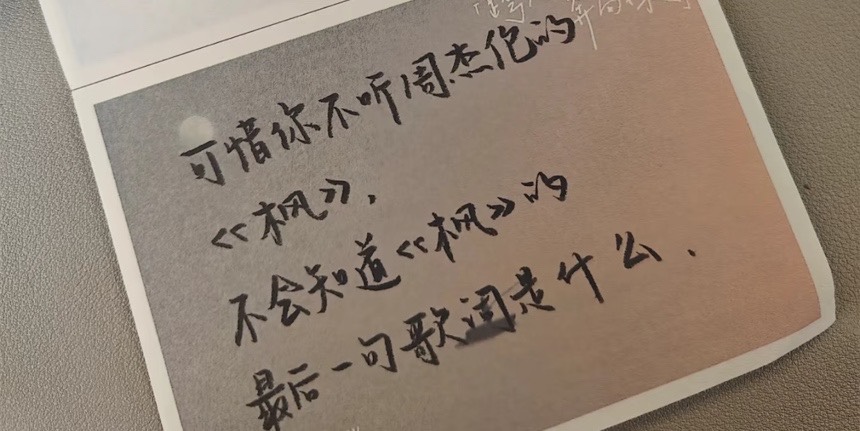 可惜你不听周杰伦的
《枫》,
不会知道《枫》的
最后一句歌词是什么.